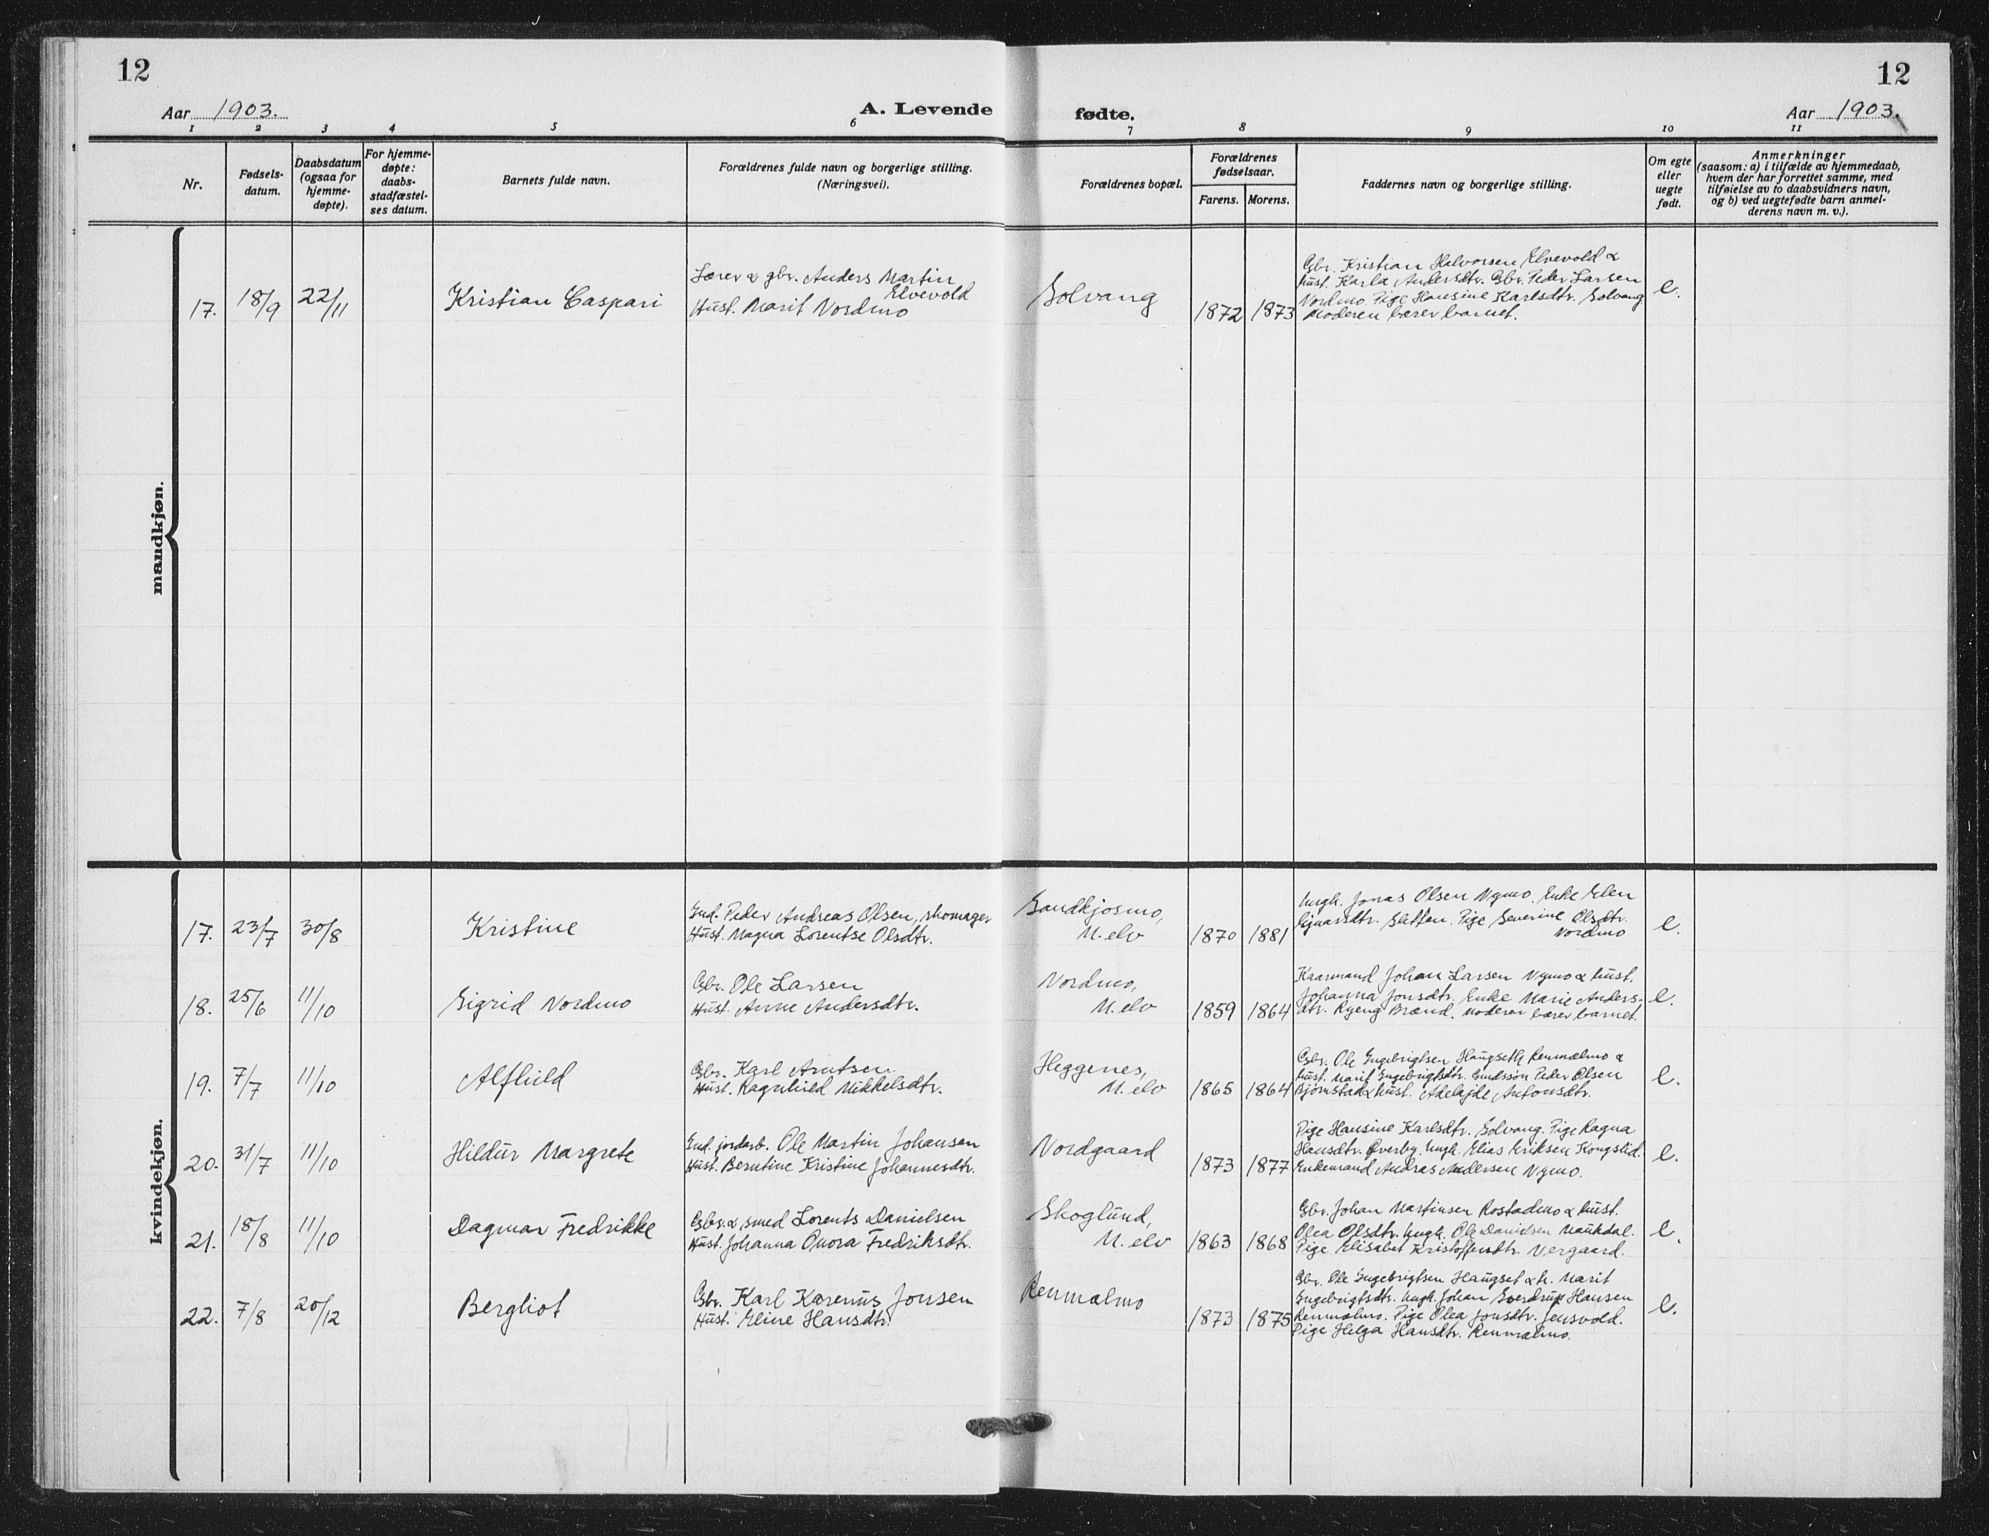 12
12
Aar 1903.
A. Levende
fødte.
Aar 1903.
1 2 3 4 5 6 7 8 9 10 11
Nr.
Fødsels-
datum.
Daabsdatum
(ogsaa for
hjemme-
døpte).
For hjemme-
døpte:
daabs-
stadfæstel-
ses datum.
Barnets fulde navn.
Forældrenes fulde navn og borgerlige stilling.
(Næringsvei).
Forældrenes bopæl.
Forældrenes
fødselsaar.
Farens. Morens.
Faddernes navn og borgerlige stilling.
Om egte
eller
uegte
født.
Anmerkninger
(saasom: a) i tilfælde av hjemmedaab,
hvem der har forrettet samme, med
tilføielse av to daabsvidners navn,
og b) ved uegtefødte barn anmel-
derens navn m. v.).
mandkjøn.
17. 18/9 22/11
Kristian Caspari
Lærer & gbr. Anders Martin
Elvevold
Hust. Marit Nordmo
Solvang
1872 1873
Gbr. Kristian Halvorsen Elvevold &
hust. Karla Andersdtr. Gbr. Peder Larsen
Nordmo. Pige Hansine Karlsdtr. Solvang
Moderen bærer barnet.
e.
kvindekjøn.
17. 23/7 30/8
Kristine
Ind. Peder Andreas Olsen, skomager
Hust. Magna Lorentse Olsdtr.
Sandkjosmo,
M. elv
1870 1881
Ungk. Jonas Olsen Nymo. Enke Elen
Ejnarsdtr. Sletten. Pige Severine Olsdtr.
Nordmo
e.
18. 25/6 11/10
Sigrid Nordmo
Gbr. Ole Larsen
Hust. Anne Andersdtr.
Nordmo,
M. elv
1859 1864
Kaarmand Johan Larsen Nymo & hust.
Johanna Jonsdtr. Enke Marie Anders-
dtr. Ryeng Brænd. Moderen bærer barnet.
e.
19. 7/7 11/10
Alfhild
Gbr. Karl Arntsen
Hust. Ragnhild Mikkelsdtr.
Heggenes,
M. elv
1865 1864
Gbr. Ole Engebrigtsen Haugseth Renmælmo &
hust. Marit Engebrigtsdtr. Gmdssøn Peder Olsen
Bjørnstad & hust. Adelajde Antonsdtr.
e.
20. 31/7 11/10
Hildur Margrete
Ind. jordarb. Ole Martin Johansen
Hust. Berntine Kristine Johannesdtr.
Nordgaard
1873 1877
Pige Hansine Karlsdtr. Solvang. Pige Ragna
Hansdtr. Øverby. Ungk. Elias Eriksen Kongslid.
Enkemand Andras Andersen Nymo.
e.
21. 18/8 11/10
Dagmar Fredrikke
Gbr. & smed Lorents Danielsen
Hust. Johanna Onora Fredriksdtr.
Skoglund,
M. elv
1863 1868
Gbr. Johan Martinsen Rostadmo & hust.
Olea Olsdtr. Ungk. Ole Danielsen Maukdal.
Pige Elisabet Kristoffersdtr. Vergaard.
e.
22. 7/8 20/12
Bergliot
Gbr. Karl Karenus Jonsen
Hust. Eline Hansdtr.
Renmælmo
1873 1875
Gbr. Ole Engebrigtsen Haugset & h. Marit
Engebrigtsdtr. Ungk. Johan Sverdrup Hansen
Renmælmo. Pige Olea Jonsdtr. Jensvold.
Pige Helga Hansdtr. Renmælmo.
e.